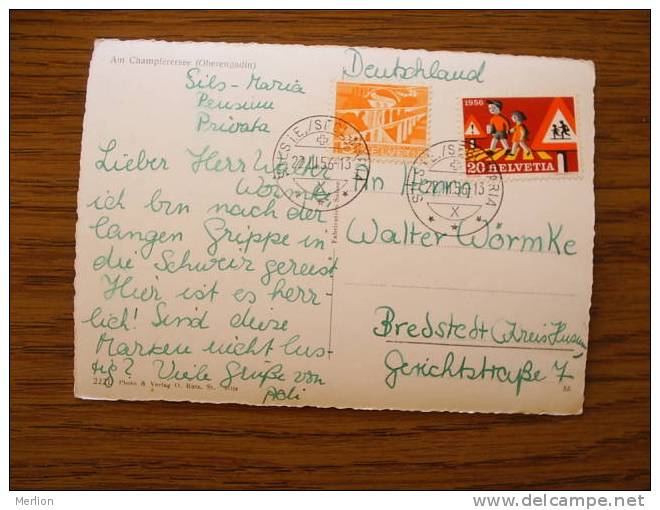 Am Champferersee (Oberengadin)
Sils-Maria
Pension
Privata
Lieber Herr Walter
Wörmke,
ich bin nach der
langen Grippe in
die Schweiz gereist
Hier ist es herr-
lich! Sind diese
Marken nicht lus-
tig? Viele Grüße von
Deutschland
HELVETIA
1956
20 HELVETIA
22.III.56-13
X
22.III.56-13
X
An Herrn
Walter Wörmke
Bredstedt (Kreis Husum)
Gerichtstraße 7
2220 Photo & Verlag O. Rutz, St.
Merlion
www.delcampe.net